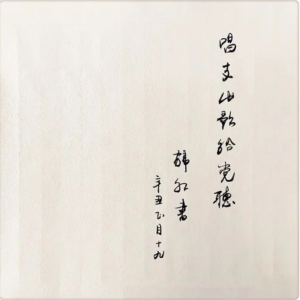 唱支山歌給党聽
红書
辛丑正月十九